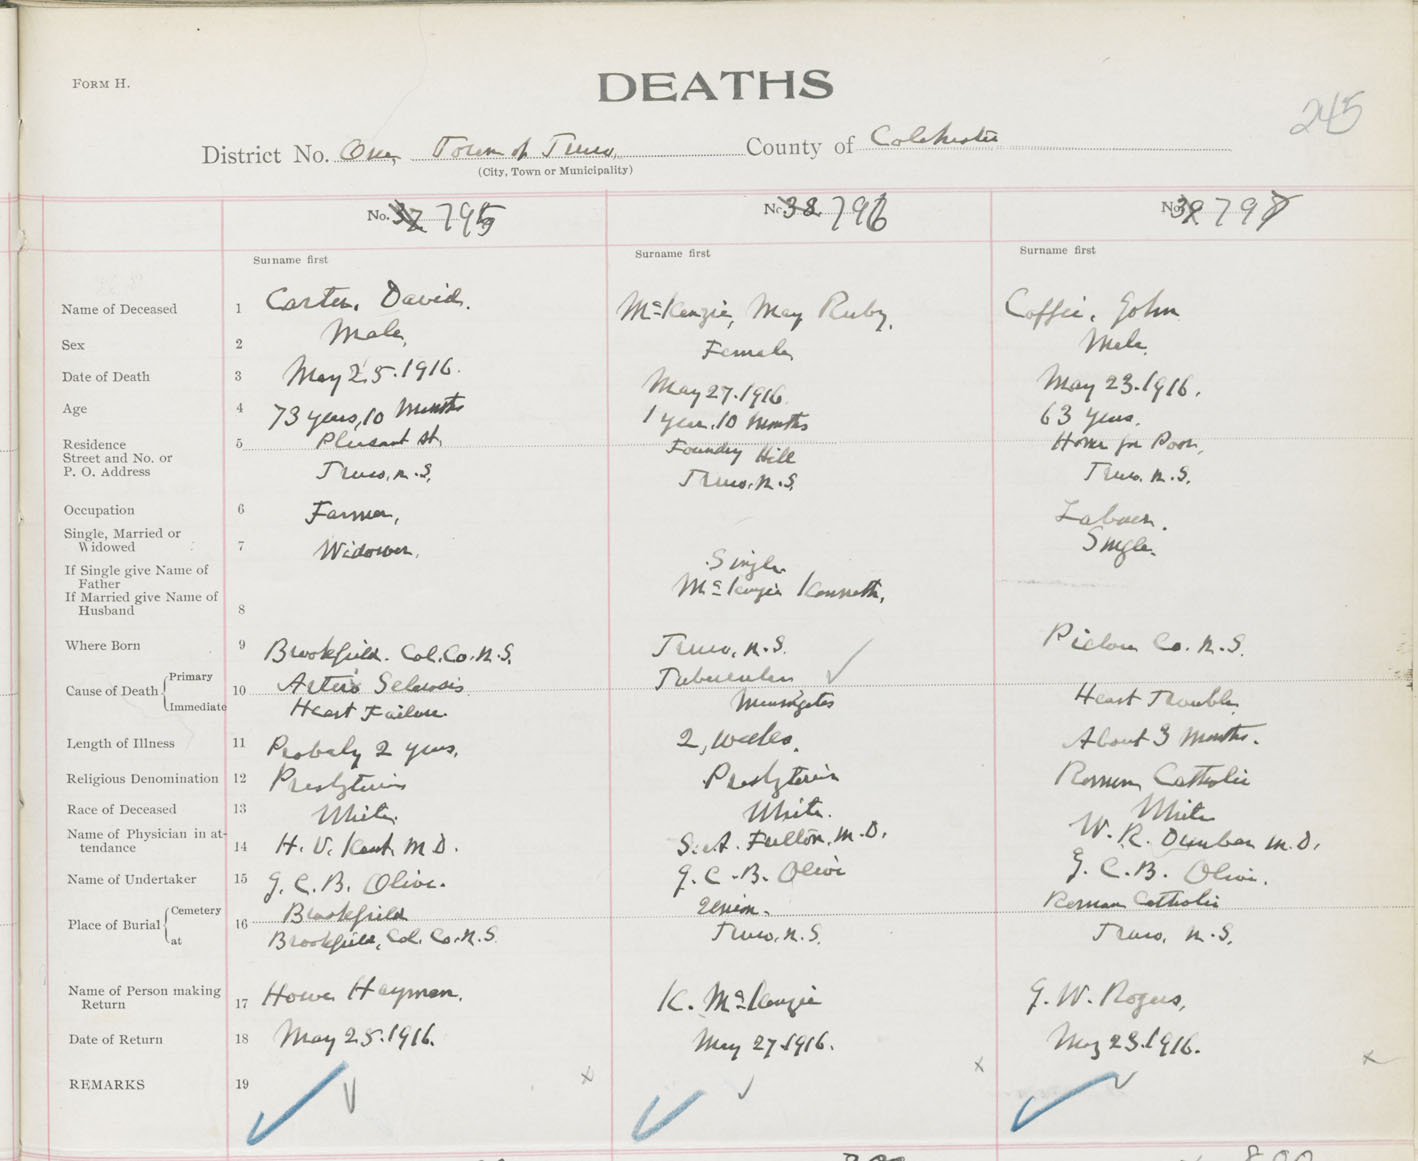 FORM H.
DEATHS
245
District No. One, Town of Truro, County of Colchester
(City, Town or Municipality)
No. 37 795 No. 38 796 No. 39 797
Surname first Surname first Surname first
Name of Deceased 1 Carter, David. McKenzie, May Ruby, Coffie, John
Sex 2 Male, Female Male.
Date of Death 3 May 25. 1916. May 27. 1916. May 23. 1916.
Age 4 73 years, 10 Months 1 year. 10 Months 63 years.
Residence 5 Pleasant St. Foundry Hill Home for Poor,
Street and No. or
P. O. Address Truro, N.S. Truro, N.S. Truro. N.S.
Occupation 6 Farmer, Laborer.
Single, Married or
Widowed 7 Widower, Single Single.
If Single give Name of
Father McKenzie Kenneth,
If Married give Name of
Husband 8
Where Born 9 Brookfield. Col. Co. N.S. Truro, N.S. Pictou Co. N.S.
Primary
Cause of Death 10 Arterio Sclerosis Tubercular
Immediate Heart Failure. Meningates Heart Trouble
Length of Illness 11 Probaly 2 years. 2, weeks. About 3 Months.
Religious Denomination 12 Presbyterian Presbyterian Roman Catholic
Race of Deceased 13 White. White. White
Name of Physician in at-
tendance 14 H. V. Kent M D. S. A. Fulton, M.D. W. R. Dunbar M.D.
Name of Undertaker 15 G. C. B. Olive. G. C. B. Olive G. C. B. Olive.
Cemetery Brookfield Union. Roman Catholic
Place of Burial 16
at Brookfield, Col. Co. N.S. Truro, N.S. Truro, N.S.
Name of Person making
Return 17 Howe Hayman. K. McKenzie G. W. Rogers,
Date of Return 18 May 25. 1916. May 27 1916. May 23. 1916.
REMARKS 19